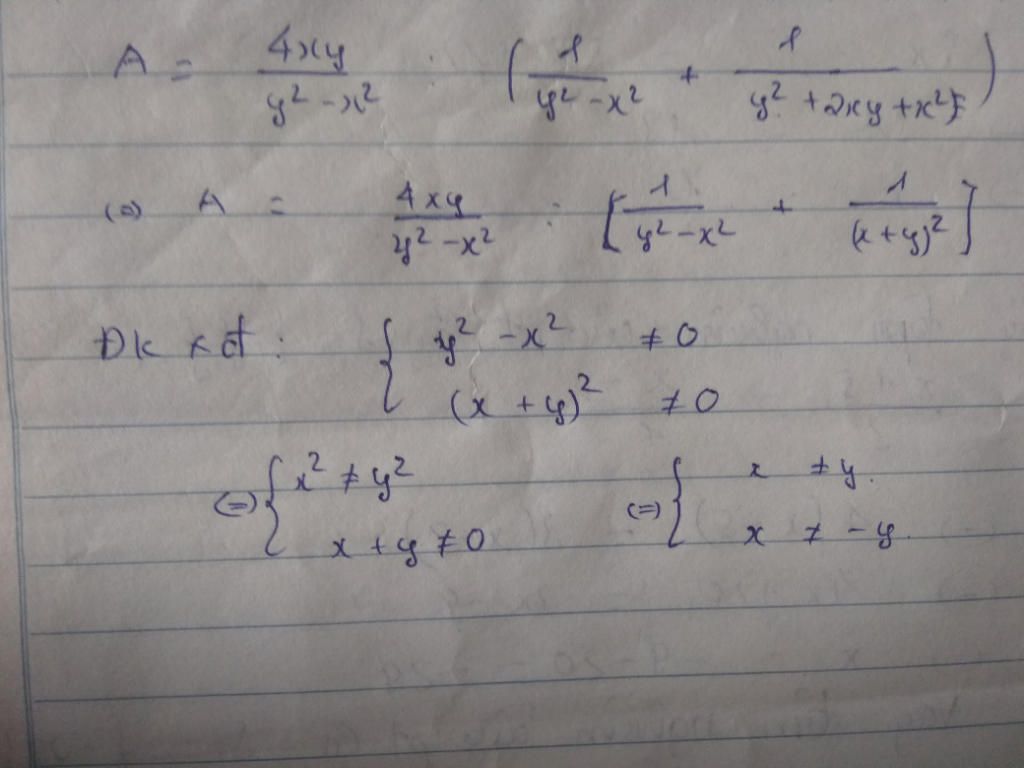 A = 4xy / (y² - x²) : ( 1 / (y² - x²) + 1 / (y² + 2xy + x²) )
(=) A = 4xy / (y² - x²) : [ 1 / (y² - x²) + 1 / (x + y)² ]
Đk xđ : { y² - x² ≠ 0
(x + y)² ≠ 0
(=) { x² ≠ y² (=) { x ≠ y.
x + y ≠ 0 x ≠ - y.